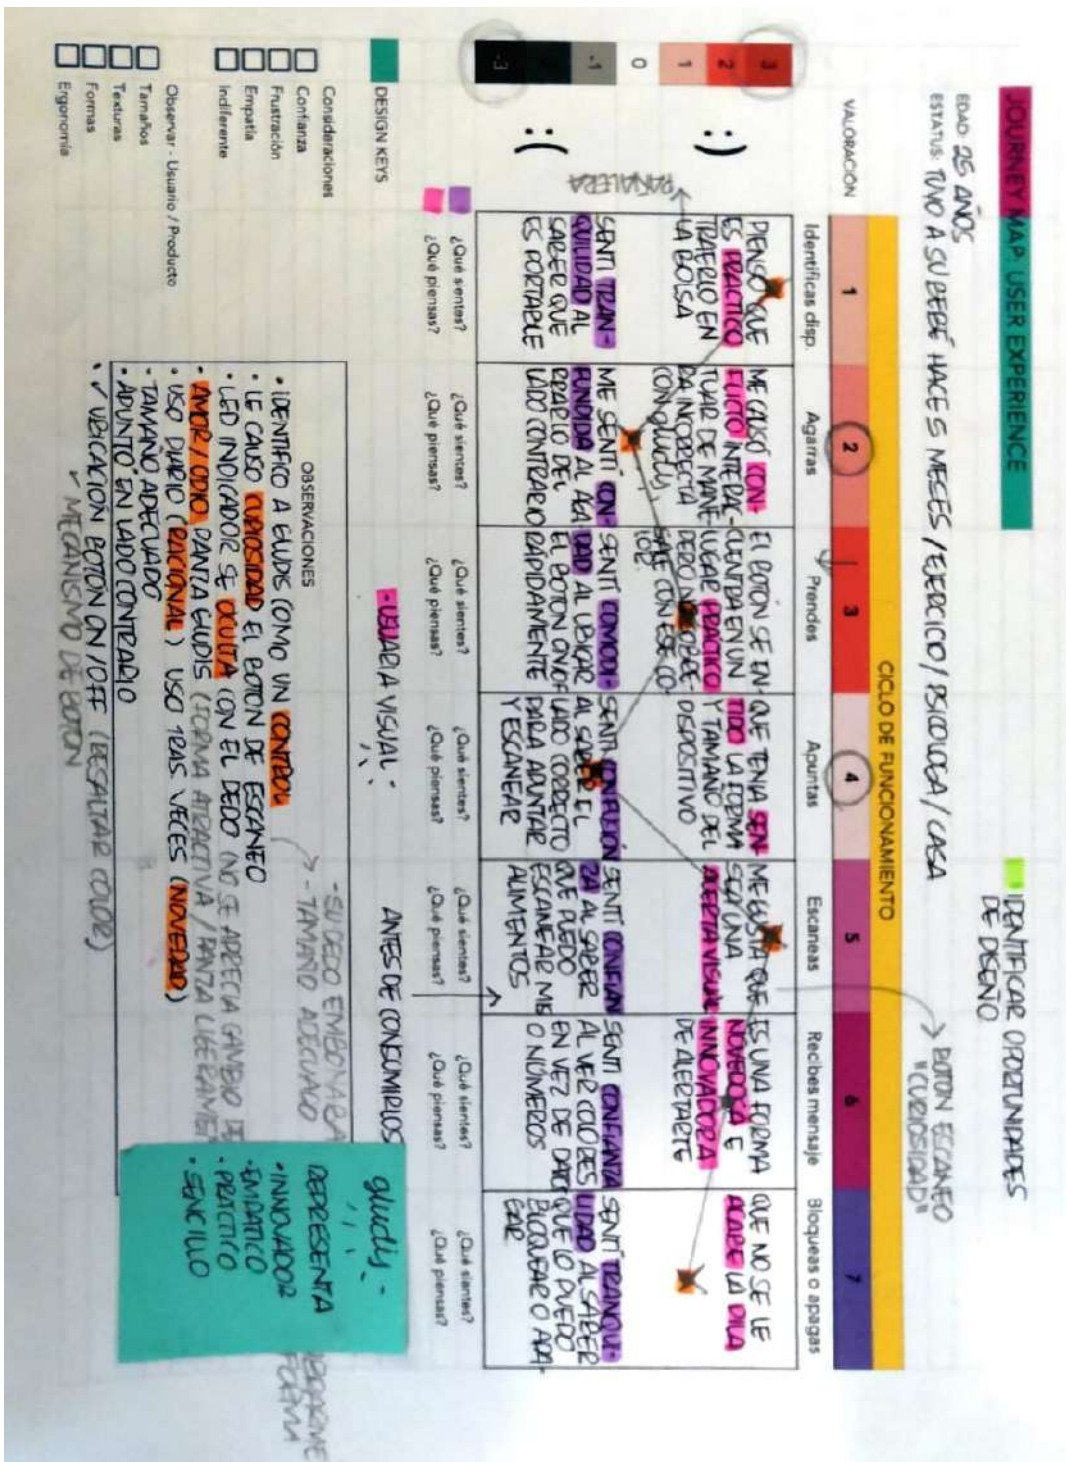 JOURNEY MAP: USER EXPERIENCE
EDAD: 25 AÑOS
ESTATUS: TUVO A SU BEBÉ HACE 5 MESES / EJERCICIO / PSICOLOGA / CASA
IDENTIFICAR OPORTUNIDADES
DE DISEÑO
BOTON ESCANEO
"CURIOSIDAD"
CICLO DE FUNCIONAMIENTO
VALORACIÓN
1 2 3 4 5 6 7
Identificas disp.
Agarras
Prendes
Apuntas
Escaneas
Recibes mensaje
Bloqueas o apagas
3
2
1
0
-1
-3
:)
:(
PAÑALERA
PIENSO QUE
ES PRACTICO
TRAERLO EN
LA BOLSA
ME CAUSÓ CON-
FLICTO INTERAC-
TUAR DE MANE-
RA INCORRECTA
CON gludis,
EL BOTÓN SE EN-
CUENTRA EN UN
LUGAR PRACTICO
PERO NO
SALE CON ESE CO-
LOR.
QUE TENIA SEN-
TIDO LA FORMA
Y TAMAÑO DEL
DISPOSITIVO
ME GUSTA QUE
SEA UNA
ALERTA VISUAL
ES UNA FORMA
NOVEDOSA E
INNOVADORA
DE ALERTARTE
QUE NO SE LE
ACABE LA PILA
SENTI TRAN-
QUILIDAD AL
SABER QUE
ES PORTABLE
ME SENTÍ CON-
FUNDIDA AL AGA
RRARLO DEL
LADO CONTRARIO
SENTÍ COMODI-
DAD AL UBICAR
EL BOTON ON/OFF
RÁPIDAMENTE
SENTI CONFUSIÓN
AL SABER EL
LADO CORRECTO
PARA APUNTAR
Y ESCANEAR
SENTÍ CONFIAN
ZA AL SABER
QUE PUEDO
ESCANEAR MIS
ALIMENTOS
SENTI CONFIANZA
AL VER COLORES
EN VEZ DE DATOS
O NÚMEROS
SENTÍ TRANQUI-
LIDAD AL SABER
QUE LO PUEDO
BLOQUEAR O APA-
GAR
¿Qué sientes?
¿Qué piensas?
¿Qué sientes?
¿Qué piensas?
¿Qué sientes?
¿Qué piensas?
¿Qué sientes?
¿Qué piensas?
¿Qué sientes?
¿Qué piensas?
¿Qué sientes?
¿Qué piensas?
¿Qué sientes?
¿Qué piensas?
DESIGN KEYS
- USUARIA VISUAL -
ANTES DE CONSUMIRLOS
Consideraciones
Confianza
Frustración
Empatía
Indiferente
Observar - Usuario / Producto
Tamaños
Texturas
Formas
Ergonomía
OBSERVACIONES
• IDENTIFICO A GLUDIS COMO UN CONTROL
• LE CAUSO CURIOSIDAD EL BOTON DE ESCANEO
• LED INDICADOR SE OCULTA CON EL DEDO (NO SE APRECIA CAMBIO DE
• AMOR / ODIO PANZA GLUDIS (FORMA ATRACTIVA / PANZA LIGERAMENTE
• USO DIARIO (RACIONAL) USO TRAS VECES (NOVEDAD)
• TAMAÑO ADECUADO
• APUNTÓ EN LADO CONTRARIO
• ✓ UBICACIÓN BOTÓN ON/OFF (RESALTAR COLOR)
✓ MECANISMO DE BOTÓN
- SU DEDO EMBONARA
- TAMAÑO ADECUADO
FORMA
gludis -
REPRESENTA
• INNOVADOR
• EMPATICO
• PRACTICO
• SENCILLO